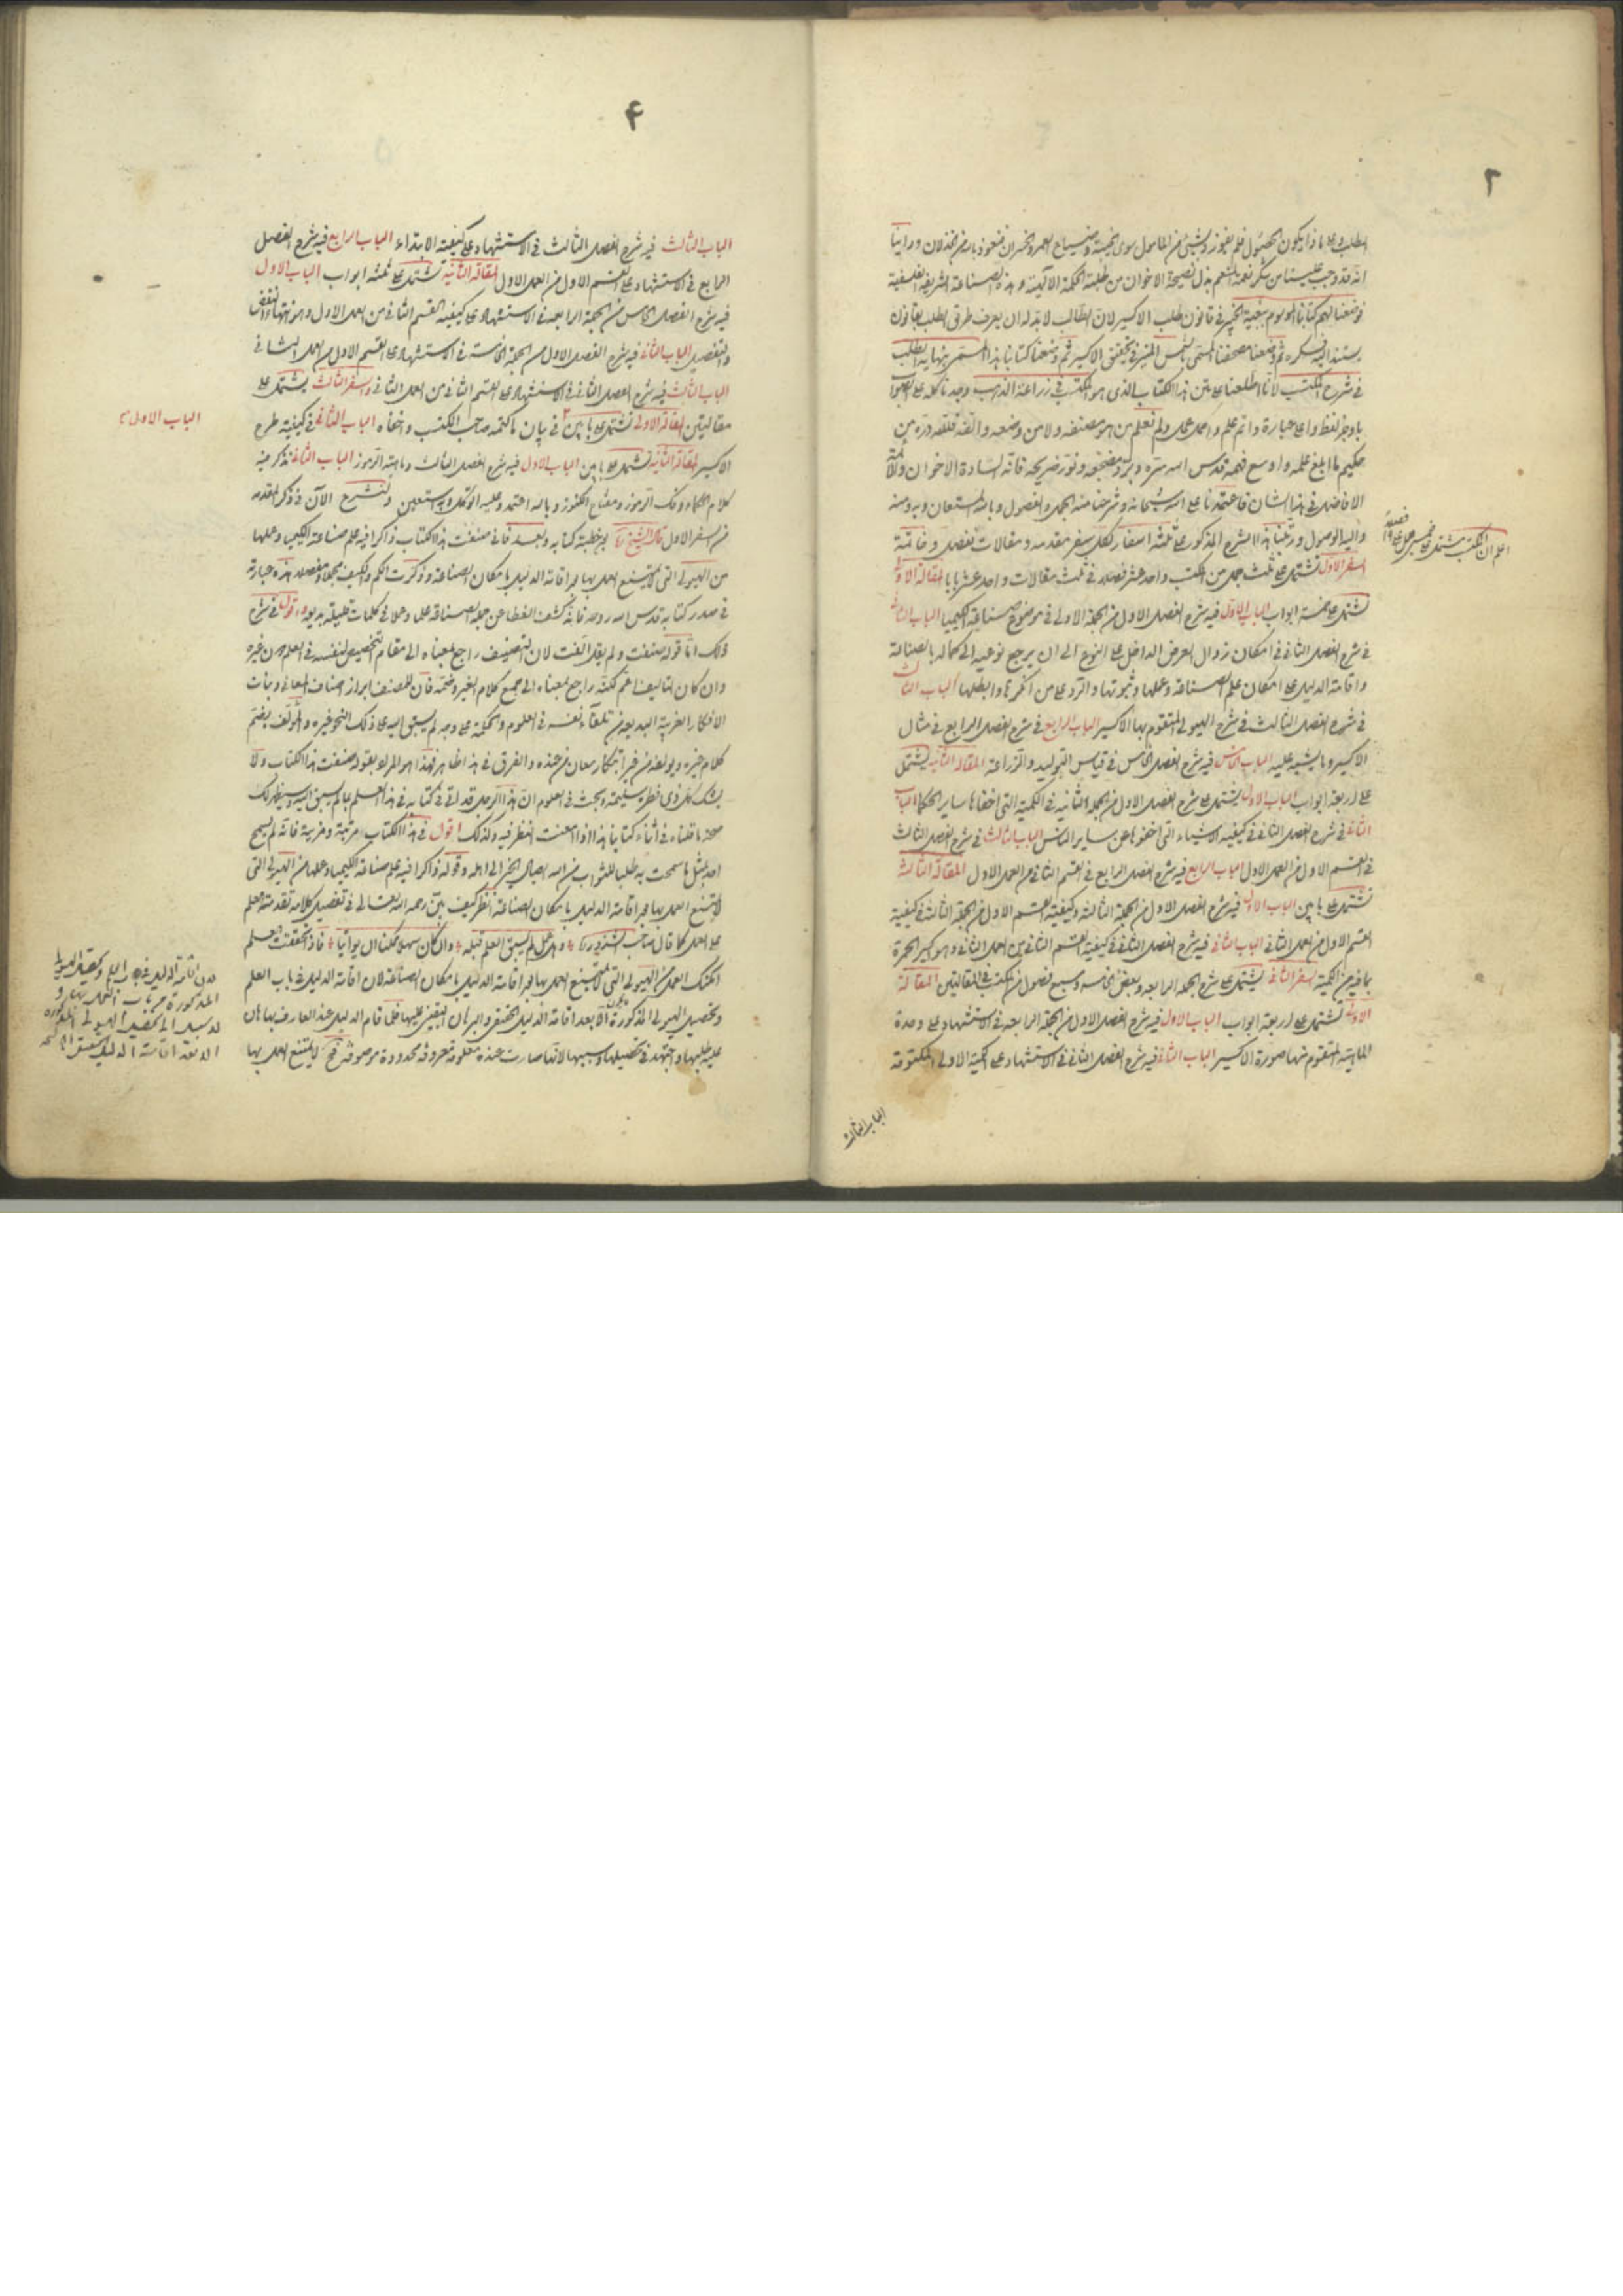 ٢
المطلب على ماذا يكون الحصول فلم يفوزوا بشئ من المامول سوى الخيبة وضياع العمر والخسران فنعوذ بالله من الخذلان وراينا
انه قد وجب علينا من شكر نعمة المنعم بذل نصيحة الاخوان من طلبة الحكمة الالهية وهذه الصناعة الشريفة الفلسفية
فوضعنا لهم كتابنا الموسوم ببغية الخبير في قانون طلب الاكسير لان الطالب لا بد له ان يعرف طرق الطلب بقانون
يستند اليه فكره ثم وضعنا مصحفنا المسمى بالشمس المنير في تحقيق الاكسير ثم وضعنا كتابنا هذا المسمى بنهاية الطلب
في شرح المكتسب لانا اطلعنا على متن هذا الكتاب الذى هو المكتسب في زراعة الذهب وجدناه كله على الصواب
باوجز لفظ واعلى عبارة واتم علم واجمل عمل ولم نعلم من هو مصنفه ولا من وضعه والفه فلله دره من
حكيم ما ابلغ علمه واوسع فهمه قدس الله سره وبرد مضجعه ونور ضريحه فانه لسادة الاخوان والائمة
الافاضل في هذا الشان فاعتمدنا على الله سبحانه وشرحنا منه الجمل والفصول وبالله المستعان وبه ومنه
واليه الوصول ورتبنا هذا الشرح المذكور على ثلثة اسفار لكل سفر مقدمه ومقالات تفصل وخاتمة
السفر الاول تشتمل على ثلث جمل من المكتسب واحد عشر فصلا في ثلث مقالات واحد عشر بابا المقالة الاولى
تشتمل على خمسة ابواب الباب الاول فيه شرح الفصل الاول من الجملة الاولى في موضوع صناعة الكيميا الباب الثاني
في شرح الفصل الثاني في امكان زوال العرض الداخل على النوع الى ان يرجع نوعيه الى كماله بالصناعة
واقامة الدليل على امكان علم الصناعة وعملها وثبوتها والرد على من انكرها وابطلها الباب الثالث
في شرح الفصل الثالث في شرح الهيولى المتقوم بها الاكسير الباب الرابع في شرح الفصل الرابع في مثال
الاكسير وما يشبه عليه الباب الخامس فيه شرح الفصل الخامس في قياس التوليد والزراعة المقالة الثانية تشتمل
على اربعة ابواب الباب الاول يشتمل على شرح الفصل الاول من الجملة الثانيه في الكمية التى اخفاها ساير الحكما الباب
الثاني في شرح الفصل الثاني في كيفية الاشياء التى اخفوها عن ساير الناس الباب الثالث في شرح الفصل الثالث
في القسم الاول من العمل الاول الباب الرابع فيه شرح الفصل الرابع في القسم الثاني من العمل الاول المقالة الثالثة
تشتمل على بابين الباب الاول فيه شرح الفصل الاول من الجملة الثالثة وكيفية القسم الاول من الجملة الثالثة في كيفية
القسم الاول من العمل الثاني الباب الثاني فيه شرح الفصل الثاني في كيفية القسم الثاني من العمل الثاني وهو اكسير الحمرة
بما فيه من الكمية السفر الثاني يشتمل على شرح الجملة الرابعه وبعض الخامسه وسبع فصول من المكتسب في المقالتين المقالة
الاولى تشتمل على اربعة ابواب الباب الاول فيه شرح الفصل الاول من الجملة الرابعه في الاستشهاد على وحدة
الماهية المتقوم منها صورة الاكسير الباب الثاني فيه شرح الفصل الثاني في الاستشهاد على كمية الاولى المكتومة
الباب الثالث
اعلم ان المكتسب مشتمل على خمس جمل
۴
الباب الثالث فيه شرح الفصل الثالث في الاستشهاد على كيفية الابتداء الباب الرابع فيه شرح الفصل
الرابع في الاستشهاد على القسم الاول من العمل الاول المقالة الثانية تشتمل على ثلثة ابواب الباب الاول
فيه شرح الفصل الخامس من الجملة الرابعه في الاستشهاد على كيفية القسم الثاني من العمل الاول وهو
والتفصيل الباب الثاني فيه شرح الفصل الاول من الجملة الخامسة في الاستشهاد على القسم الاول من العمل الثاني
الباب الثالث فيه شرح الفصل الثاني في الاستشهاد على القسم الثاني من العمل الثاني والسفر الثالث يشتمل على
مقالتين المقالة الاولى تشتمل على بابين في بيان ما كتمه صاحب المكتسب واخفاه الباب الثاني في كيفية طرح
الاكسير المقالة الثانية تشتمل على بابين الباب الاول فيه شرح الفصل الثالث وماهية الرموز الباب الثاني نذكر فيه
كلام الحكماء وفك الرموز ومفتاح الكنوز وبالله اعتمد وعليه اتوكل وبه استعين ولنشرح الآن في ذكر المقدمه
من السفر الاول قال الشيخ في خطبة كتابه وبعد فاني صنفت هذا الكتاب ذاكرا فيه علم صناعة الكيميا وعملها
من الهيولى التى لا يمتنع العمل بها بعد اقامة الدليل بامكان الصناعة وذكرت الكم والكيف مجملا ومفصلا هذه عبارة
في صدر كتابه قدس الله روحه فانه كشف الغطا عن جملة الصناعة علما وعملا في كلمات قليلة بديعه واقول في شرح
ذلك اما قوله صنفت ولم يقل الفت لان التصنيف راجع لمعناه الى مقام التخصيص لنفسه في العلم دون غيره
وان كان التاليف اعم لكنه راجع لمعناه الى جمع كلام الغير وضمه فان للمصنف ابراز اصناف المعاني وبنات
الافكار الغريبة البديعة من تلقاء نفسه في العلوم والحكمة على وجه لم يسبق اليه على ذلك النحو غيره والمؤلف يضم
كلام غيره ويولفه من غير ابتكار معان من عنده والفرق في هذا ظاهر فهذا هو المراد بقوله صنفت هذا الكتاب ولا
يشك كل ذى فطره سليمة وبحث في العلوم ان هذا الرجل قد اتى في كتابه في هذا العلم بما لم يسبق اليه وسيظهر لك
صحة ما قلناه في اثناء كتابنا هذا اذا امعنت النظر فيه ولذلك اقول في هذا الكتاب مرتبة ومزية فانه لم يسمح
احد بمثل ما سمحت به طلبا للثواب من الله بايصال الخير الى اهله وقوله ذاكرا فيه علم صناعة الكيميا وعملها من الهيولى التى
لا يمتنع العمل بها بعد اقامة الدليل بامكان الصناعة انظر كيف بين رحمه الله تعالى في تفصيل كلامه تقدمة العلم
على العمل كما قال صاحب الشذور وهل عمل لم يسبق العلم قبله وان كان سهلا ممكنا ان يواتيا فاذا تحققت العلم
امكنك العمل من الهيولى التى لا يمتنع العمل بها بعد اقامة الدليل بامكان الصناعة لان اقامة الدليل في باب العلم
وتحصيل الهيولى المذكورة لا يكون الا بعد اقامة الدليل المحقق والبرهان اليقيني عليها فلما قام الدليل عند العارف بها هان
عليه طلبها واجتهد في تحصيلها وسببها لانها صارت عنده معلومة معروفة محدودة موصوفة فح لا يمتنع العمل بها
الباب الاول
لان اقامة الدليل في باب العلم وتحصيل الهيولى
المذكورة من باب العمل بها و
لا سبيل الى تحصيل الهيولى المذكورة
الا بعد اقامة الدليل المحقق الخ